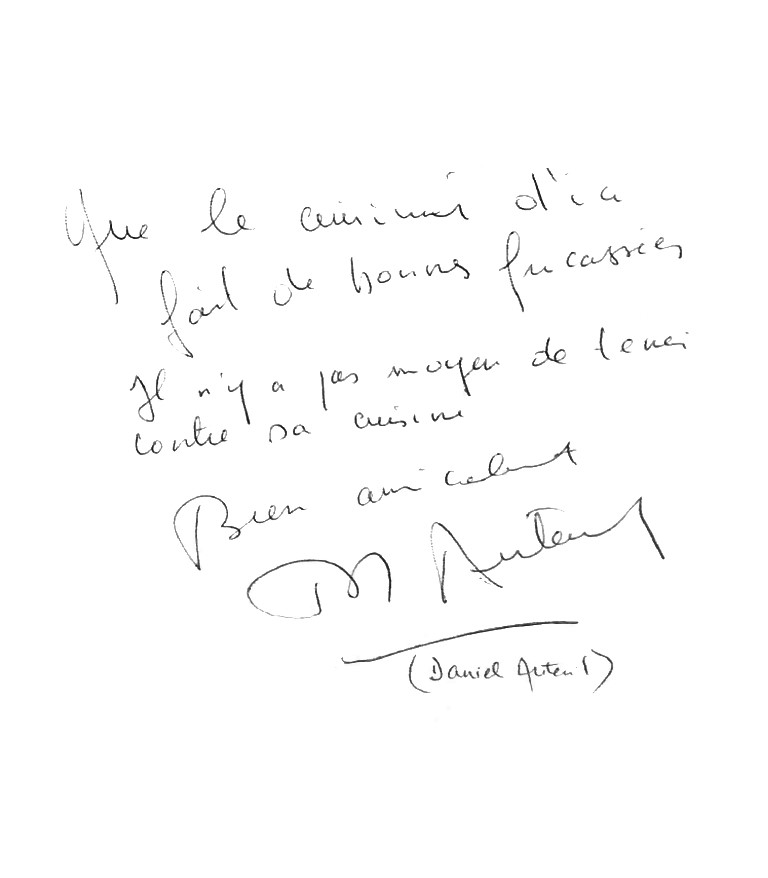 Que le cuisinier d'ici
fait de bonnes fricassées
Il n'y a pas moyen de tenir
contre sa cuisine
Bien amicalement
D Auteuil
(Daniel Auteuil)